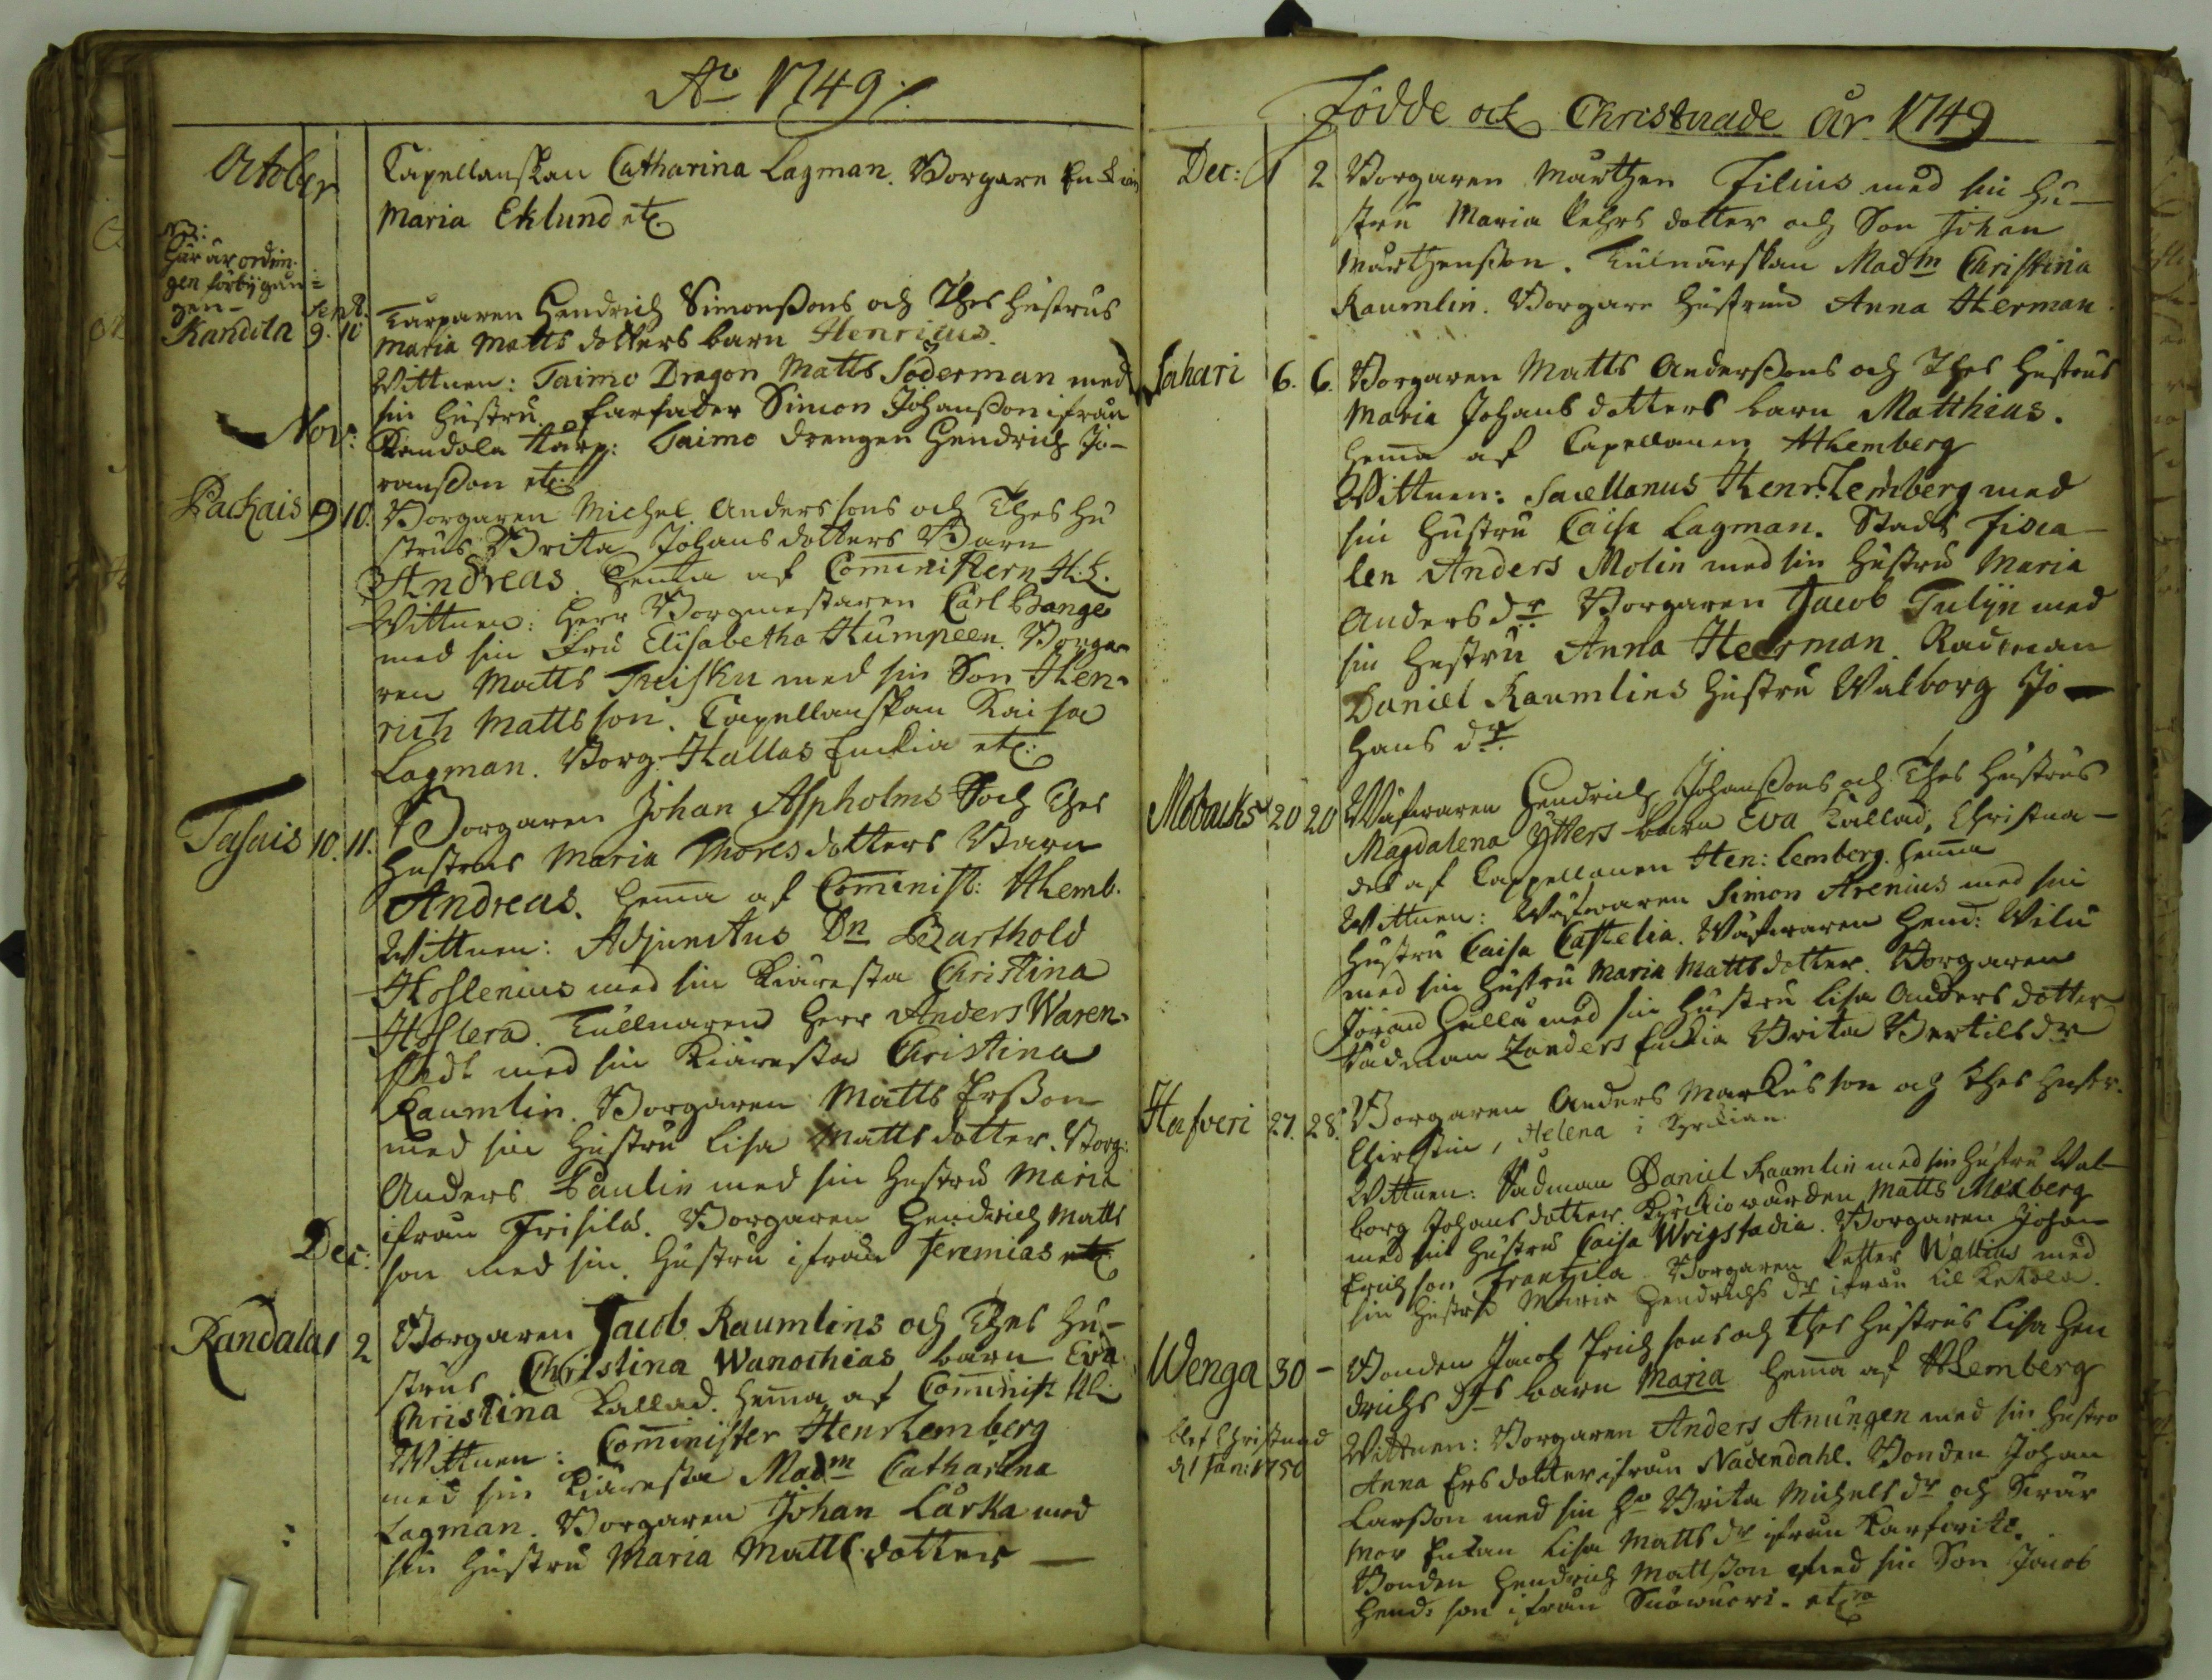 Ao 1749
October
Capellanskan Catharina Lagman. Borgare Enkian
Maria Eklund etc
NB:
här är ordnin-
gen förbijgån-
gen
Sept.
Kandila 9. 10
Torparen Hendrich Simonssons och Thes hustrus
Maria Matts dotters barn Henricus.
Vittnen: Taimo Dragon Matts Söderman med
sin hustru. farfader Simon Johansson ifrån
Kandola torp: Taimo drengen Hendrich Jö-
ransson etc
Nov:
Packais 9 10. Borgaren Michel Anderssons och Thes hu
strus Brita Johans dotters Barn
Andreas. hema af Comministern H: L.
Wittnen: Herr Borgmestaren Carl Bange
med sin Fru Elisabetha Kumpeen. Borga-
ren Matts Treisku med sin Son Hen-
rich Mattsson. Capellanskan Kaisa
Lagman. Borg: Hallas Enckia etc:
Tasais 10. 11. Borgaren Johan Aspholms och Thes
hustrus Maria Thoresdotters Barn
Andreas. hema af Cominist: HLemb.
Wittnen: Adjunctus Dn Barthold
Hoslenius med sin Kiäresta Christina
Hoslera. Tullnaren Herr Anders Waren-
stedt med sin Kiäresta Christina
Raumlin. Borgaren Matts Ersson
med sin hustru Lisa Matts dotter. Borg:
Anders Paulin med sin hustru Maria
ifrån Frisila. Borgaren Hendrich Matts
son med sin hustru ifrån Jeremias etc
Dec:
Kandala 1 2 Borgaren Jacob Raumlins och Thes hu-
strus Christina Wanochias barn Eva
Christina kallad. hema af Cominist HL:
Wittnen: Cominister HenrLemberg
med sin Kiäresta Madm Catharina
Lagman. Borgaren Johan Lårka med
sin hustru Maria Matts dotter
Födde och Christnade år 1749
Dec: 1 2 Borgaren Mårthen Filius med sin hu-
stru Maria Pehrs dotter och Son Johan
Mårthensson. Tulnärskan Madm Christina
Raumlin. Borgare hustrun Anna Herman
Sahari 6. 6. Borgaren Matts Anderssons och Thes hustrus
Maria Johans dotters barn Matthias.
hema af Capellanen HLemberg
Wittnen: Sacellanus Henr: Lemberg med
sin hustru Caisa Lagman. Stads fisca-
len Anders Molin med sin hustru Maria
Anders dr. Borgaren Jacob Tulijn med
sin hustru Anna Heerman. Radman
Daniel Raumlins hustru Walborg Jo-
hans dr.
Mobacks 20 20 Wäfvaren Hendrich Johanssons och Thes hustrus
Magdalena Ytters barn Eva kallad, Christna-
des af Cappellanen Hen: Lemberg. hema
Wittnen: Wäfwaren Simon Arenius med sin
hustru Caisa Castelia. Wäfwaren Hend: Wilu
med sin hustru Maria Mattsdotter. Borgaren
Jöran Hella med sin hustru Lisa Anders dotter
Rådman Zanders Enckia Brita Bertils dr
Hafveri 27. 28. Borgaren Anders Markusson och thes hustr.
Christin, Helena i Kyrkian.
Wittnen: Rådman Daniel Raumlin med sin hustru Wal-
borg Johansdotter. Kyrkiowärden Matts Moxberg
med sin hustru Caisa Wrigstadia. Borgaren Johan
Erichson Frantzila. Borgaren Petter Wallius med
sin hustru Maria Hendrichs dr ifrån Lill Ketola.
Wenga 30 - Bonden Jacob Erichsons och thes hustrus Lisa Hen
drichs drs barn Maria hema af HLemberg
blef Christnad
d 1 Jan: 1750
Wittnen: Borgaren Anders Anungen med sin hustro
Anna Ers dotter ifrån Nådendahl. Bonden Johan
Larsson med sin ho Brita Michels dr och Swär
mor Enkan Lisa Matts dr ifrån
Bonden Hendrich Mattsson med sin Son Jacob
Hend: son ifrån Suowuori. etc